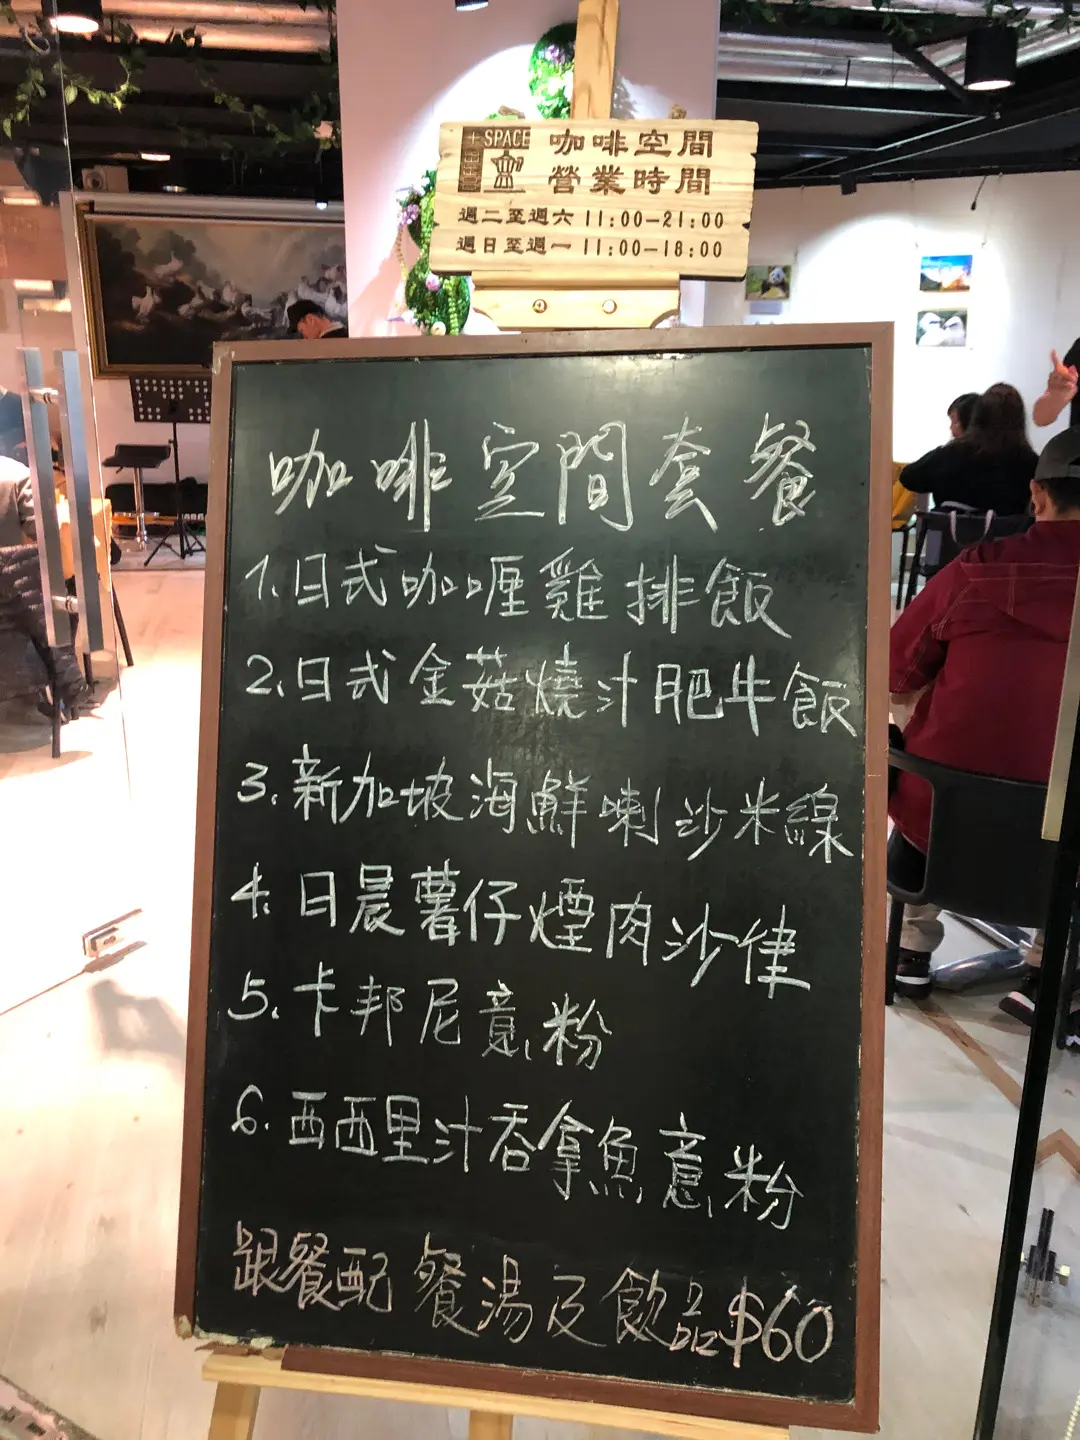 SPACE
咖啡空間
營業時間
週二至週六 11:00—21:00
週日至週一 11:00—18:00
咖啡空間套餐
1.日式咖喱雞排飯
2.日式金菇燒汁肥牛飯
3.新加坡海鮮喇沙米線
4.日晨薯仔煙肉沙律
5.卡邦尼意粉
6.西西里汁吞拿魚意粉
跟餐配餐湯及飲品$60